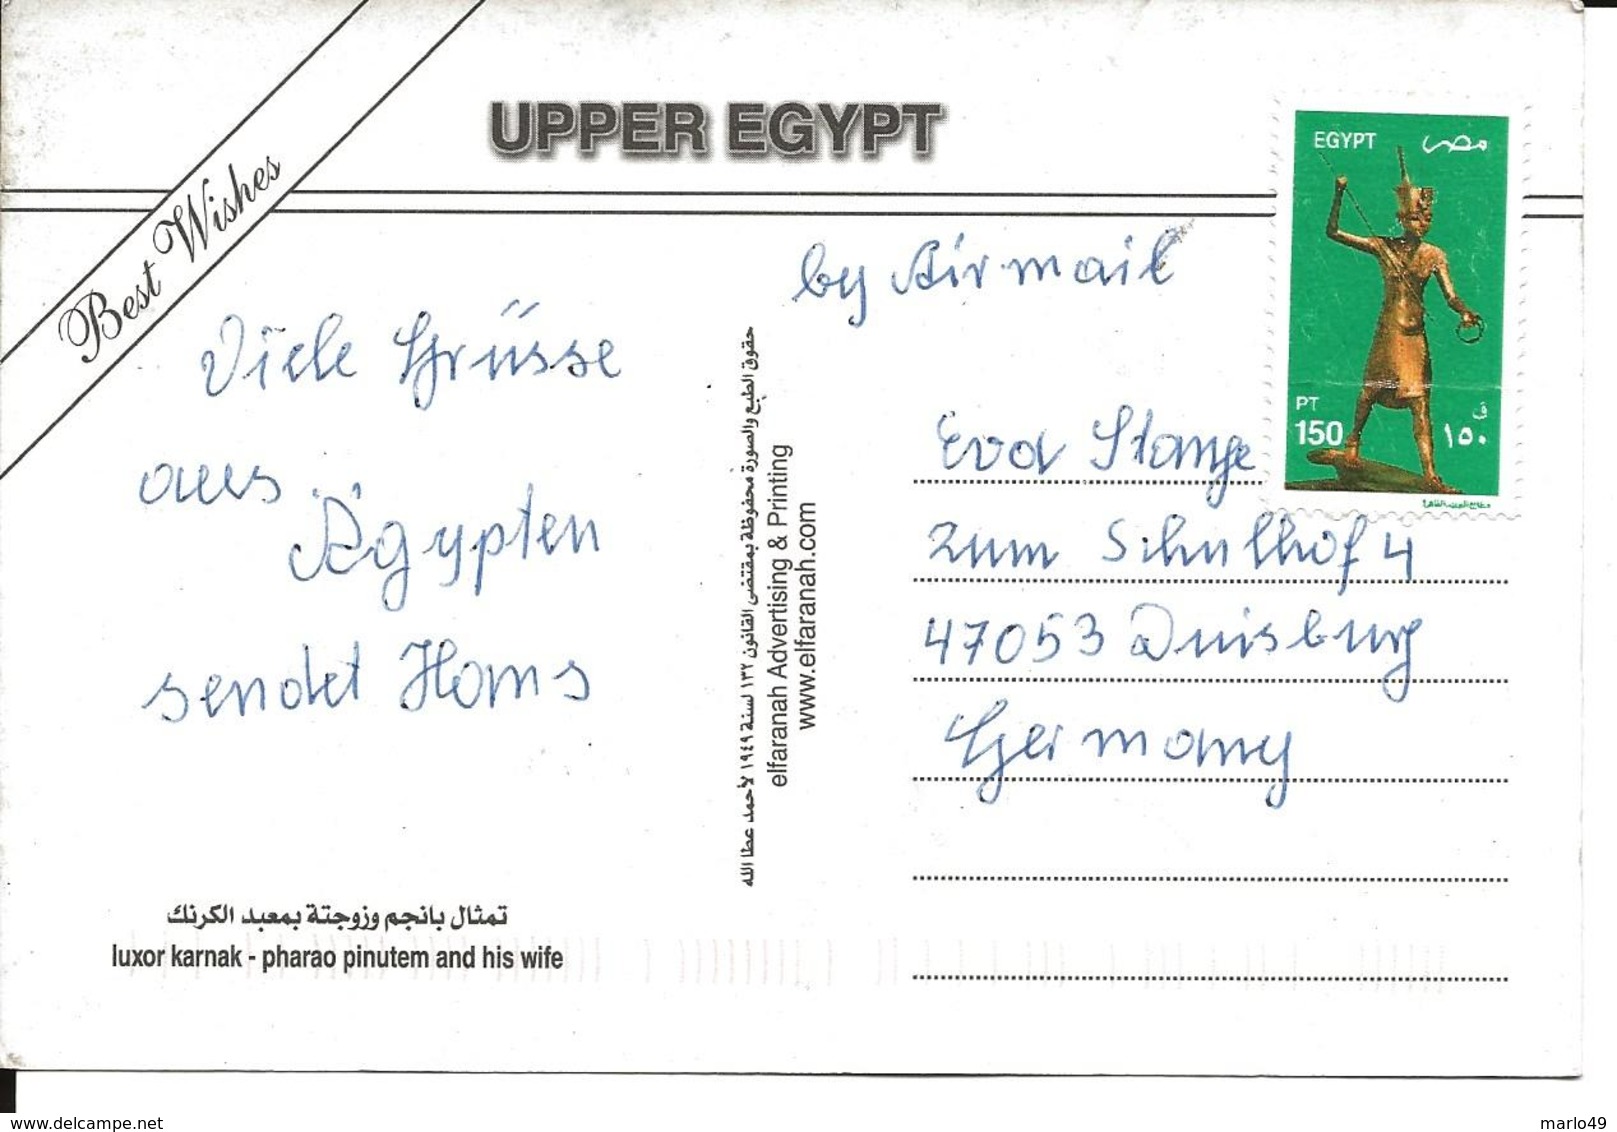 UPPER EGYPT
Best Wishes
EGYPT مصر
PT ق
150 ١٥٠
by Airmail
Viele Grüsse
aus
Ägypten
sendet Hans
حقوق الطبع والصورة محفوظة بمقتضى القانون ١٣٢ لسنة ١٩٤٩ لأحمد عطا الله
elfaranah Advertising & Printing
www.elfaranah.com
Eva Stange
Zum Schulhof 4
47053 Duisburg
Germany
تمثال بانجم وزوجتة بمعبد الكرنك
luxor karnak - pharao pinutem and his wife
delcampe.net
marlo49